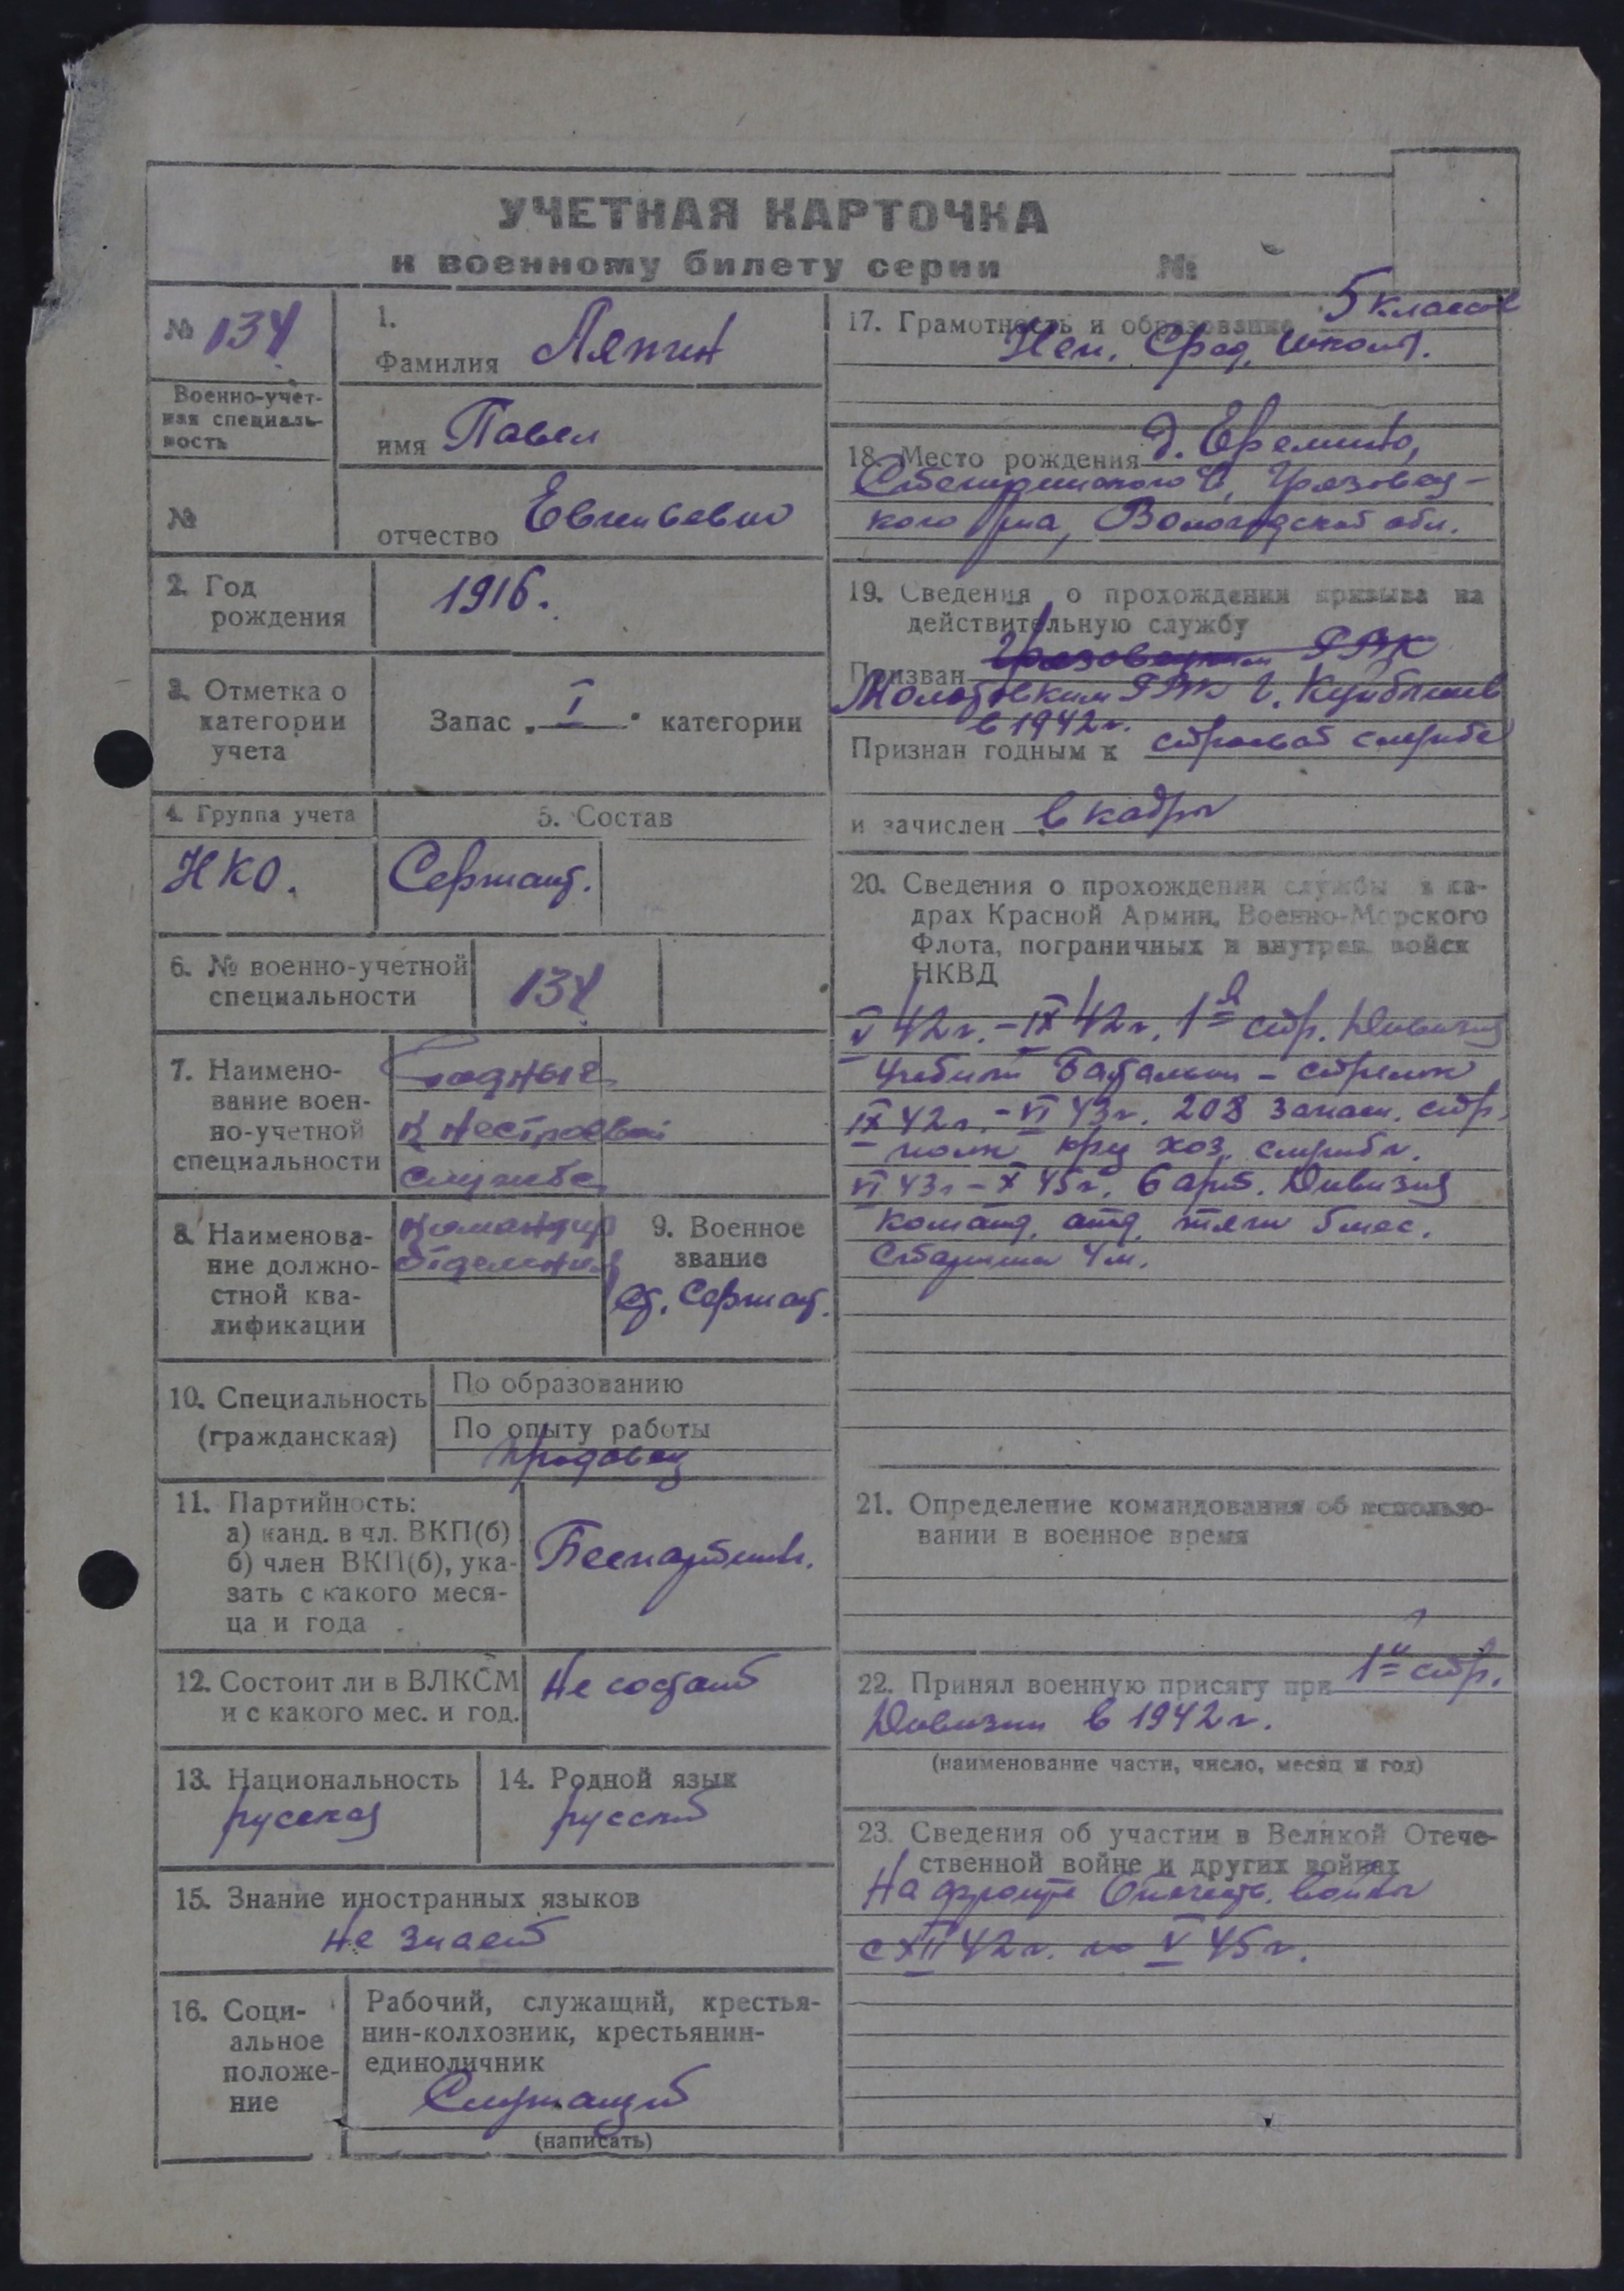 УЧЕТНАЯ КАРТОЧКА
к военному билету серии №
№ 134
Военно-учет-
ная специаль-
ность
№
1.
Фамилия Ляпин
имя Павел
отчество Евгеньевич
2. Год
рождения
1916.
3. Отметка о
категории
учета
Запас I категории
4. Группа учета
НКО.
5. Состав
Сержант.
6. № военно-учетной
специальности
134
7. Наимено-
вание воен-
но-учетной
специальности
Годные
к нестроевой
службе
8. Наименова-
ние должно-
стной ква-
лификации
Командир
отделения
9. Военное
звание
Ст. Сержант.
10. Специальность
(гражданская)
По образованию
По опыту работы
продавец
11. Партийность:
а) канд. в чл. ВКП(б)
б) член ВКП(б), ука-
зать с какого меся-
ца и года
Беспартийн.
12. Состоит ли в ВЛКСМ
и с какого мес. и год.
Не состоит
13. Национальность
русский
14. Родной язык
русский
15. Знание иностранных языков
Не знает
16. Соци-
альное
положе-
ние
Рабочий, служащий, крестья-
нин-колхозник, крестьянин-
единоличник
Служащий
(написать)
17. Грамотность и образование 5 классов
Неп. Сред. школы.
18. Место рождения д. Еремино,
Грязовец-
кого р-на, Вологодской обл.
19. Сведения о прохождении призыва на
действительную службу
Призван Грязовецким РВК
Молотовским РВК г. Куйбышев
в 1942г.
Признан годным к строевой службе
и зачислен в кадры
20. Сведения о прохождении службы в ка-
драх Красной Армии, Военно-Морского
Флота, пограничных и внутрен. войск
НКВД
V 42г. - IX 42г. 1-я стр. Дивизия
Учебный Батальон - стрелок
IX 42г. - VI 43г. 208 запасн. стр.
полк хоз. службы.
VI 43г - X 45г. 6 арт. Дивизия
команд. отд. тяги 5 мес.
Старшина 4 м.
21. Определение командования об использо-
вании в военное время
22. Принял военную присягу при 1-й стр.
Дивизии в 1942г.
(наименование части, число, месяц и год)
23. Сведения об участии в Великой Отече-
ственной войне и других войнах
На фронте Отечеств. войны
с XII 42г. по V 45г.